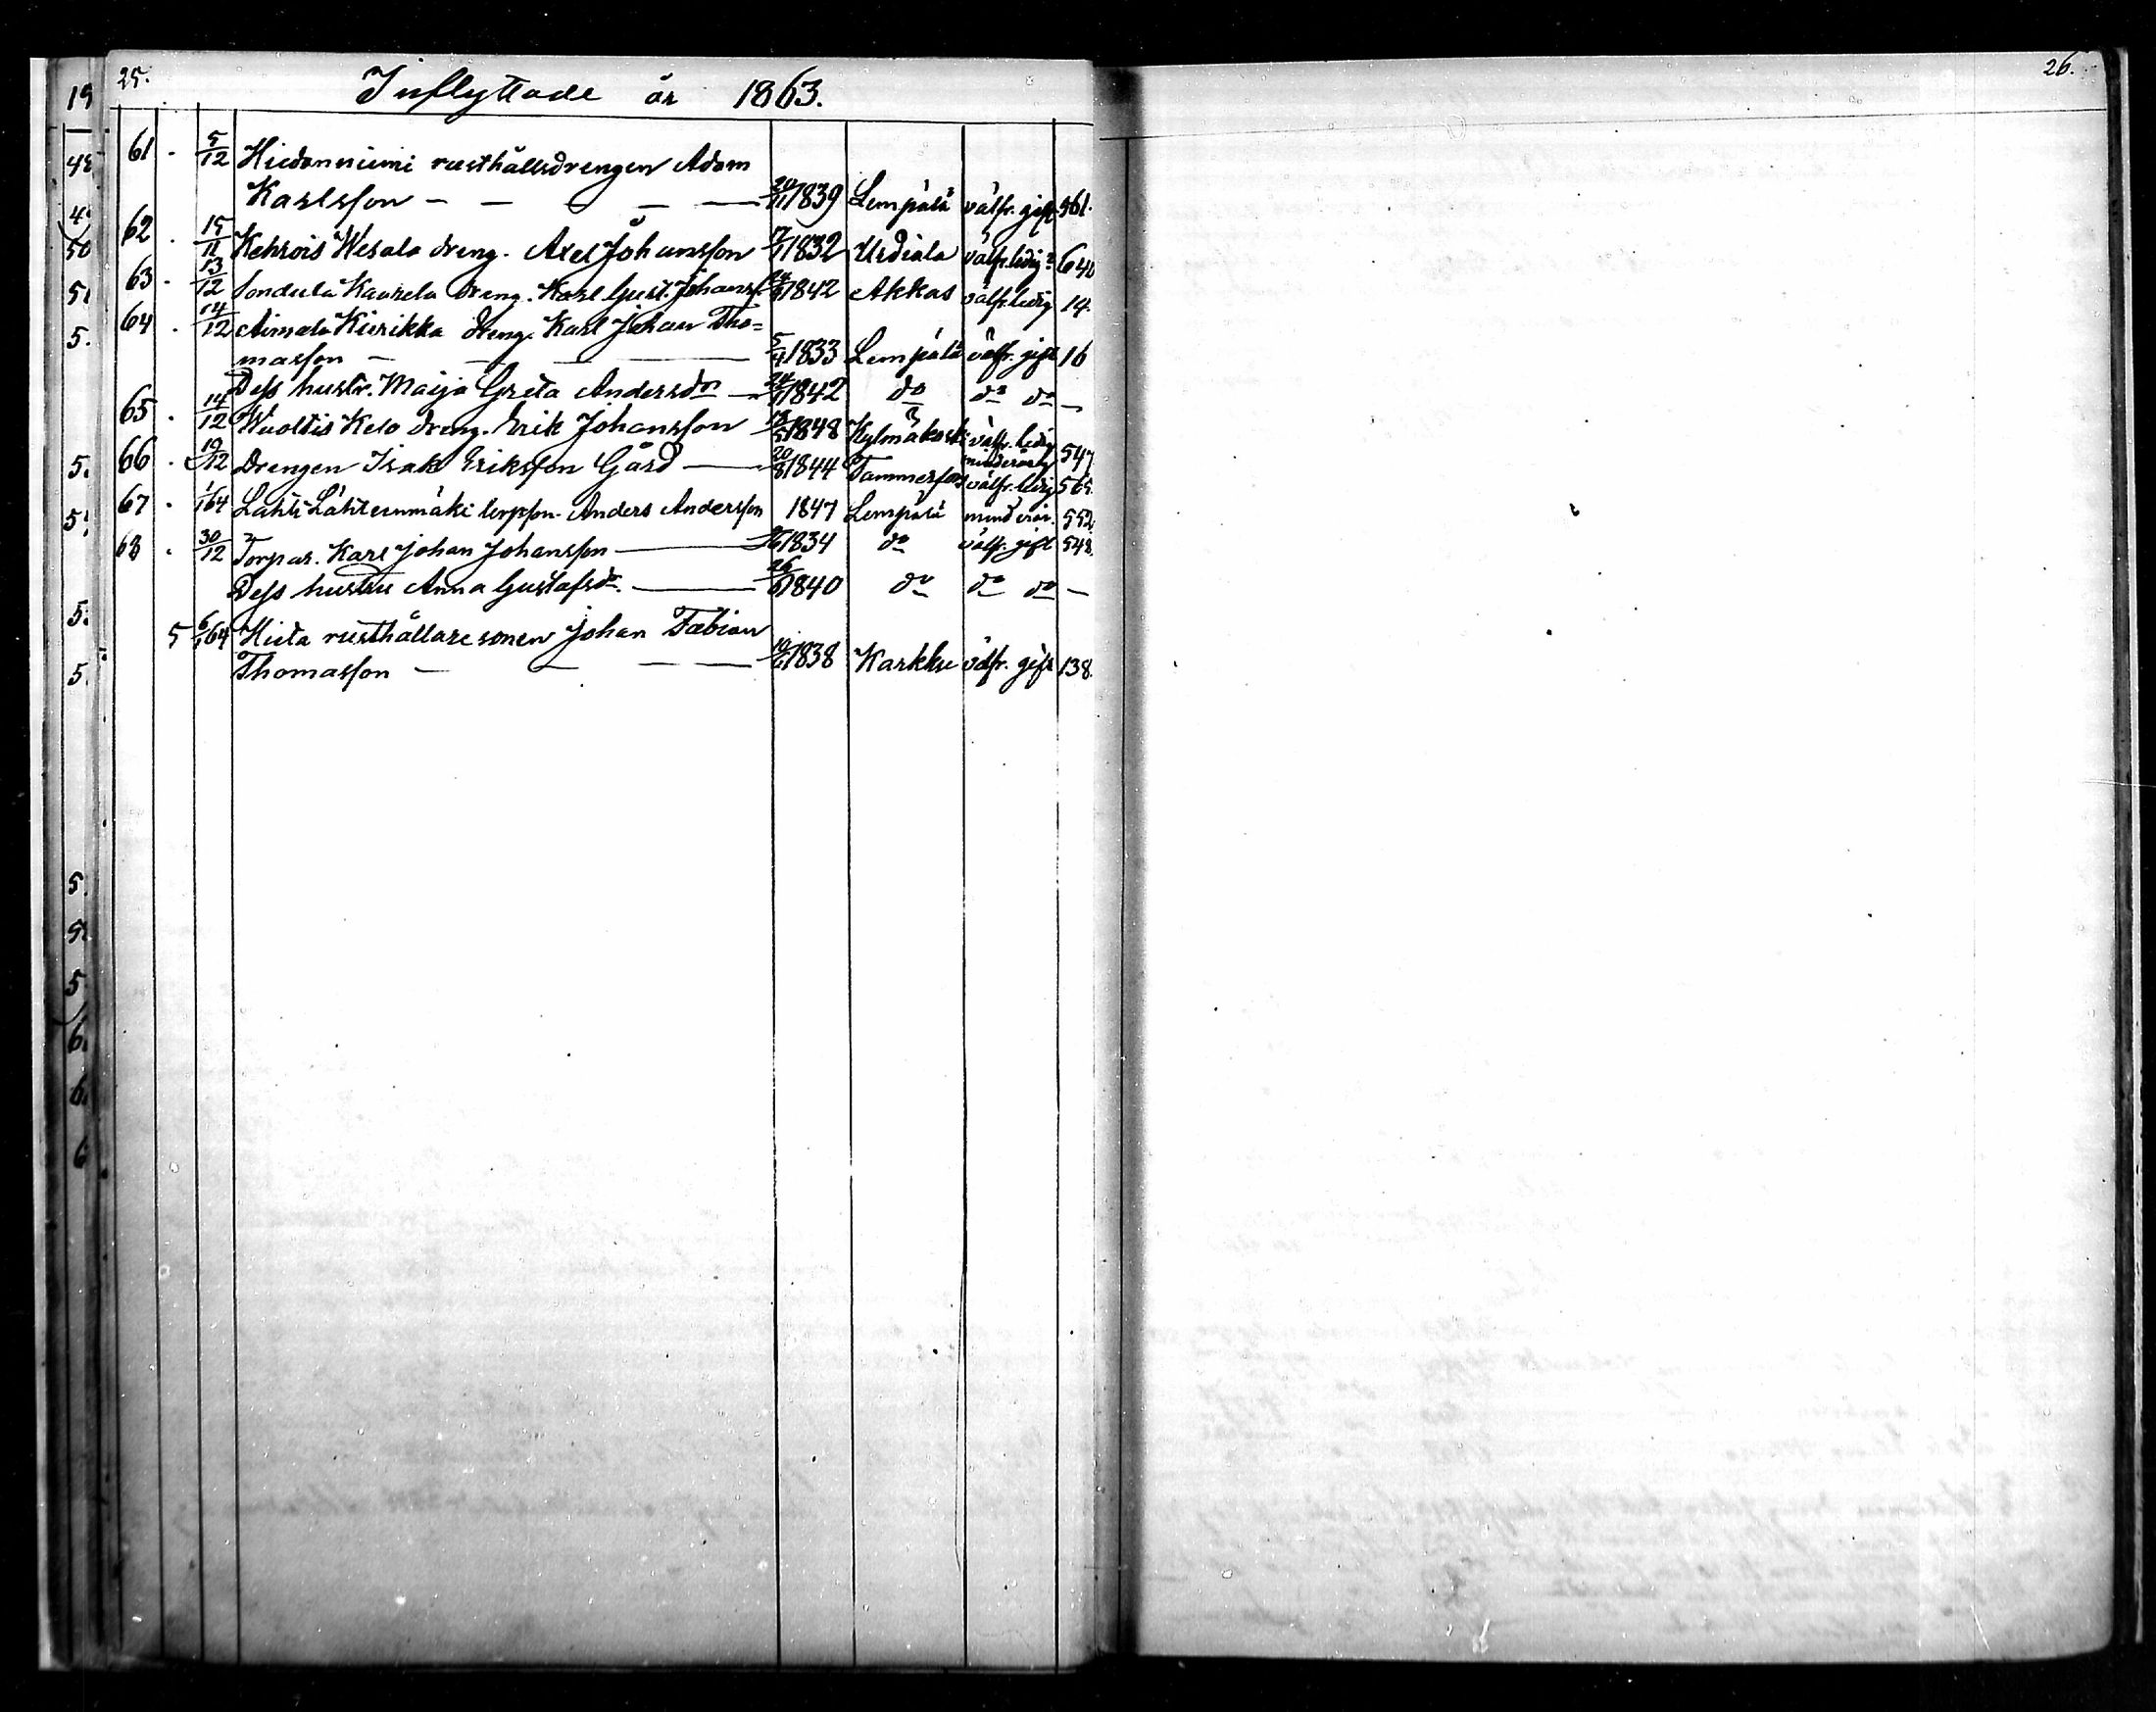 25.
Inflyttade år 1863.
26.
61 - 5/12 Hiedanniemi rusthållsdrengen Adam
Karlsson - - - - 1839 Lempälä välfr. gift 561.
62 . 15/11 Kehrois Wesala dreng. Axel Johansson 1832 Urdiala välfr. ledig 640
63 - 13/12 Sondula Kaurela dreng. Karl Gust. Johanss. 1842 Akkas välfr. ledig 14.
64 . 14/12 Aimala Kierikka dreng. Karl Johan Tho=
masson - - - 5/4 1833 Lempälä välfr. gift 16
Dess hustr. Maija Greta Andersdr - 1842 do do do -
65 . 14/12 Wuoltis Kelo dreng. Erik Johansson 1848 Kylmäkoski välfr. ledig
minderårig 547
66 . 19/12 Drengen Isak Eriksson Gård - 20/8 1844 Tammerfors välfr. ledig 565.
67 . 1/1 64 Lahti Lähteenmäki torpson. Anders Andersson 1847 Lempälä minderår. 552.
68 . 30/12 Torpar. Karl Johan Johansson - 1834 do välfr. gift 548.
Dess hustru Anna Gustafsdr. - 1840 do do do -
5 6/1 64 Hieta rusthållare sonen Johan Fabian
Thomasson - - - - 1838 Karkku välfr. gift 138.